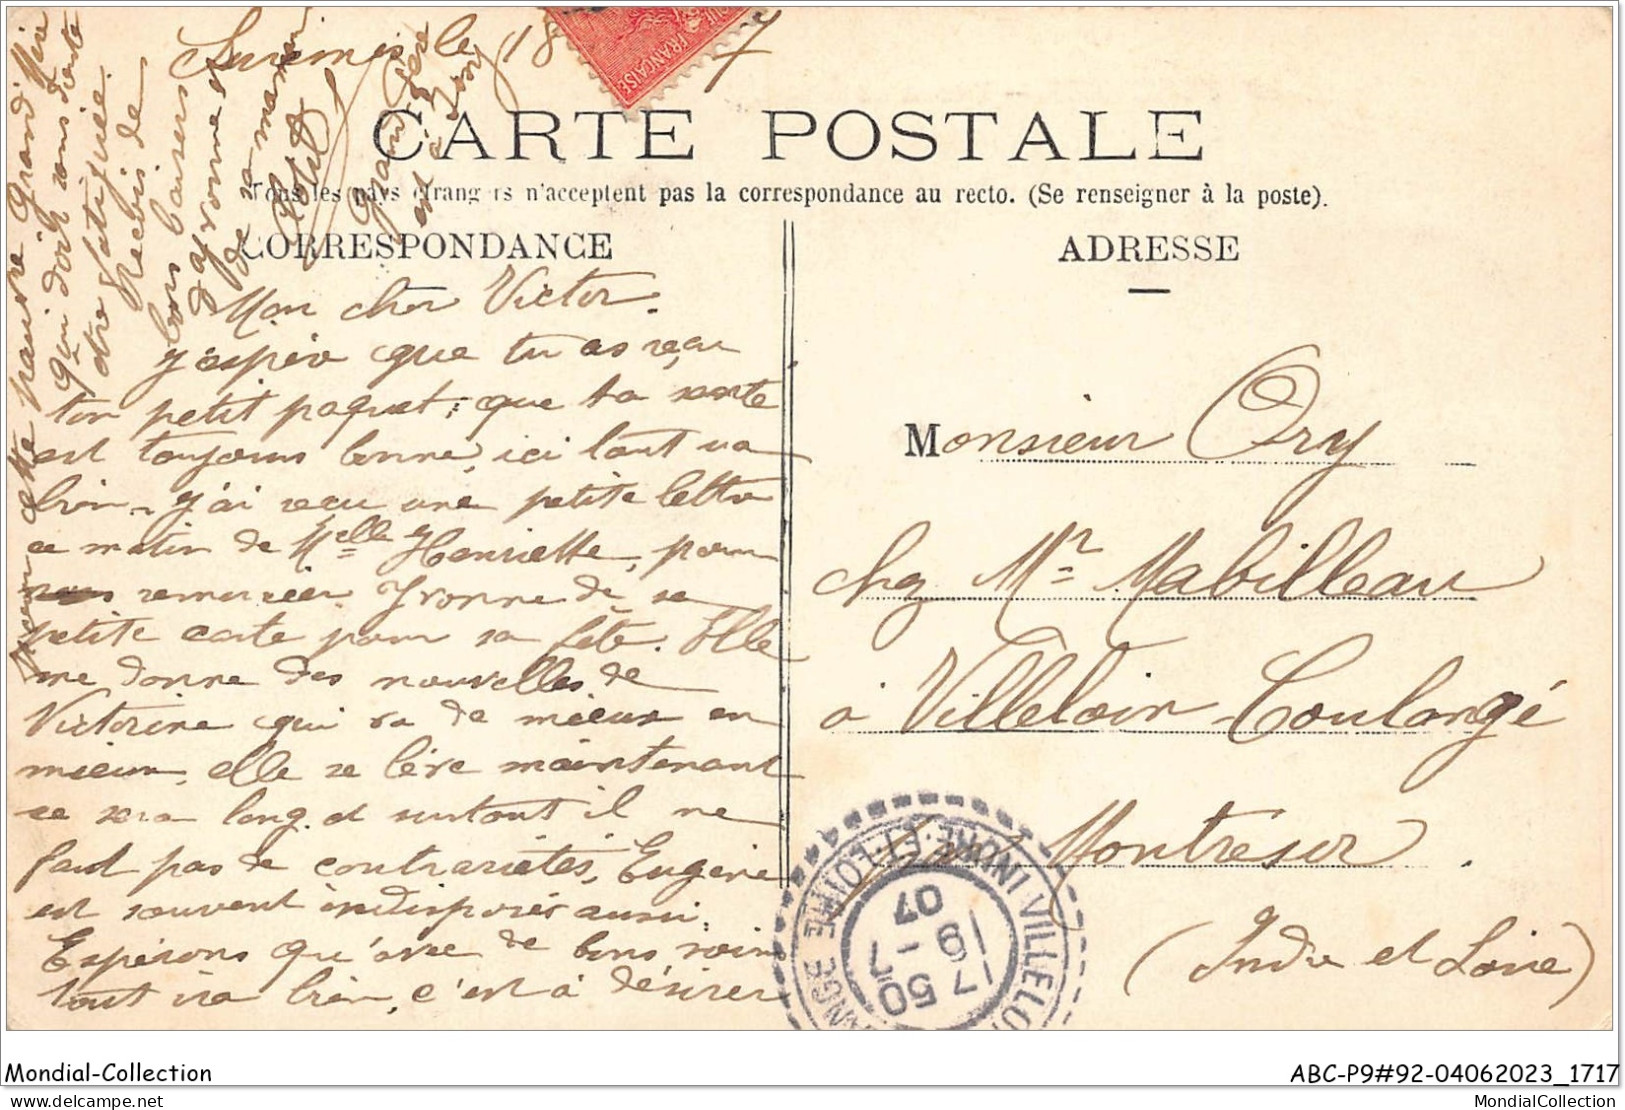 Suresnes le 18 7
FRANÇAISE
CARTE POSTALE
Tous les pays étrangers n'acceptent pas la correspondance au recto. (Se renseigner à la poste).
CORRESPONDANCE
Mon cher Victor.
j'espère que tu as reçu
ton petit paquet, que ta sante
est toujours bonne, ici tout va
bien. j'ai reçu une petite lettre
ce matin de Melle Henriette, pour
remercier Yvonne de sa
petite carte pour sa fête. Elle
me donne des nouvelles de
Victorine qui va de mieux en
mieux, elle se lève maintenant
ce sera long. et surtout il ne
faut pas de contrariétés, Eugène
est souvent indisposé aussi.
Espérons qu'avec de bons soins
tout ira bien, c'est à désirer
pour cette pauvre Grand'Mère
qui doit sans doute
être fatiguée.
Reçois de
bons baisers
d'Yvonne et
de sa maman
Grand Père
est à
ADRESSE
Monsieur Ory
chez Mr Mabilleau
à Villeloin-Coulangé
Montrésor.
(Indre et Loire)
VILLELOIN
INDRE-ET-LOIRE
17 50
19 - 7
07
Mondial-Collection
ABC-P9#92-04062023_1717
delcampe.net
MondialCollection